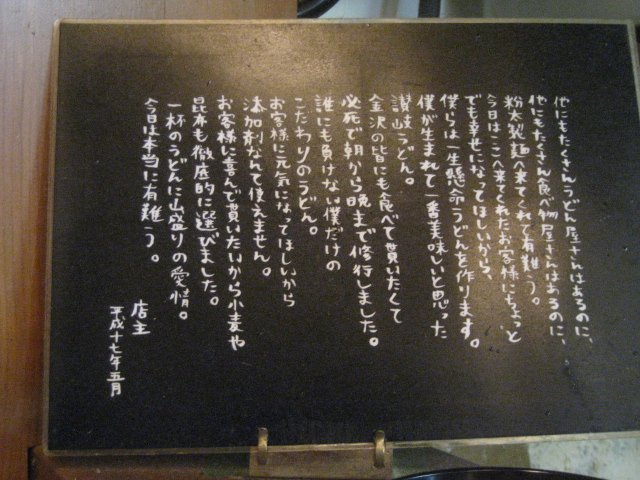 他にもたくさんうどん屋さんはあるのに、
他にもたくさん食べ物屋さんはあるのに、
粉太製麺へ来てくれて有難う。
今日はここへ来てくれたお客様にちょっと
でも幸せになってほしいから、
僕らは一生懸命うどんを作ります。
僕が生まれて一番美味しいと思った
讃岐うどん。
金沢の皆にも食べて貰いたくて
必死で朝から晩まで修行しました。
誰にも負けない僕だけの
こだわりのうどん。
お客様に元気になってほしいから
添加剤なんて使えません。
お客様に喜んで貰いたいから小麦や
昆布も徹底的に選びました。
一杯のうどんに山盛りの愛情。
今日は本当に有難う。
店主
平成十七年五月